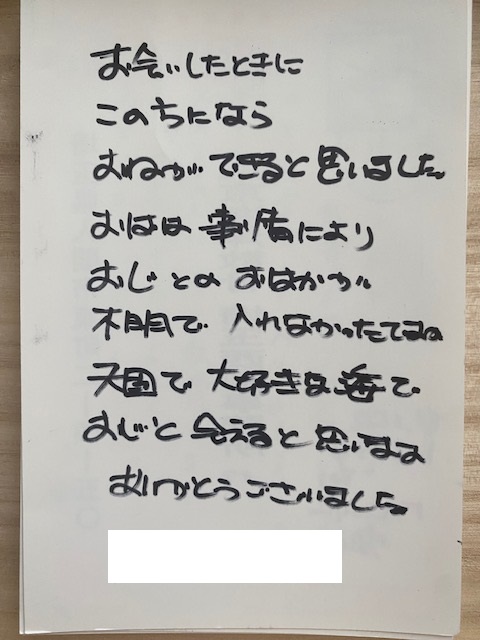 お会いしたときに
この方になら
おねがいできると思いました
おばは事情により
おじとのおはかが
不明で入れなかったですね
天国で大好きな海で
おじと会えると思いますよ
ありがとうございました